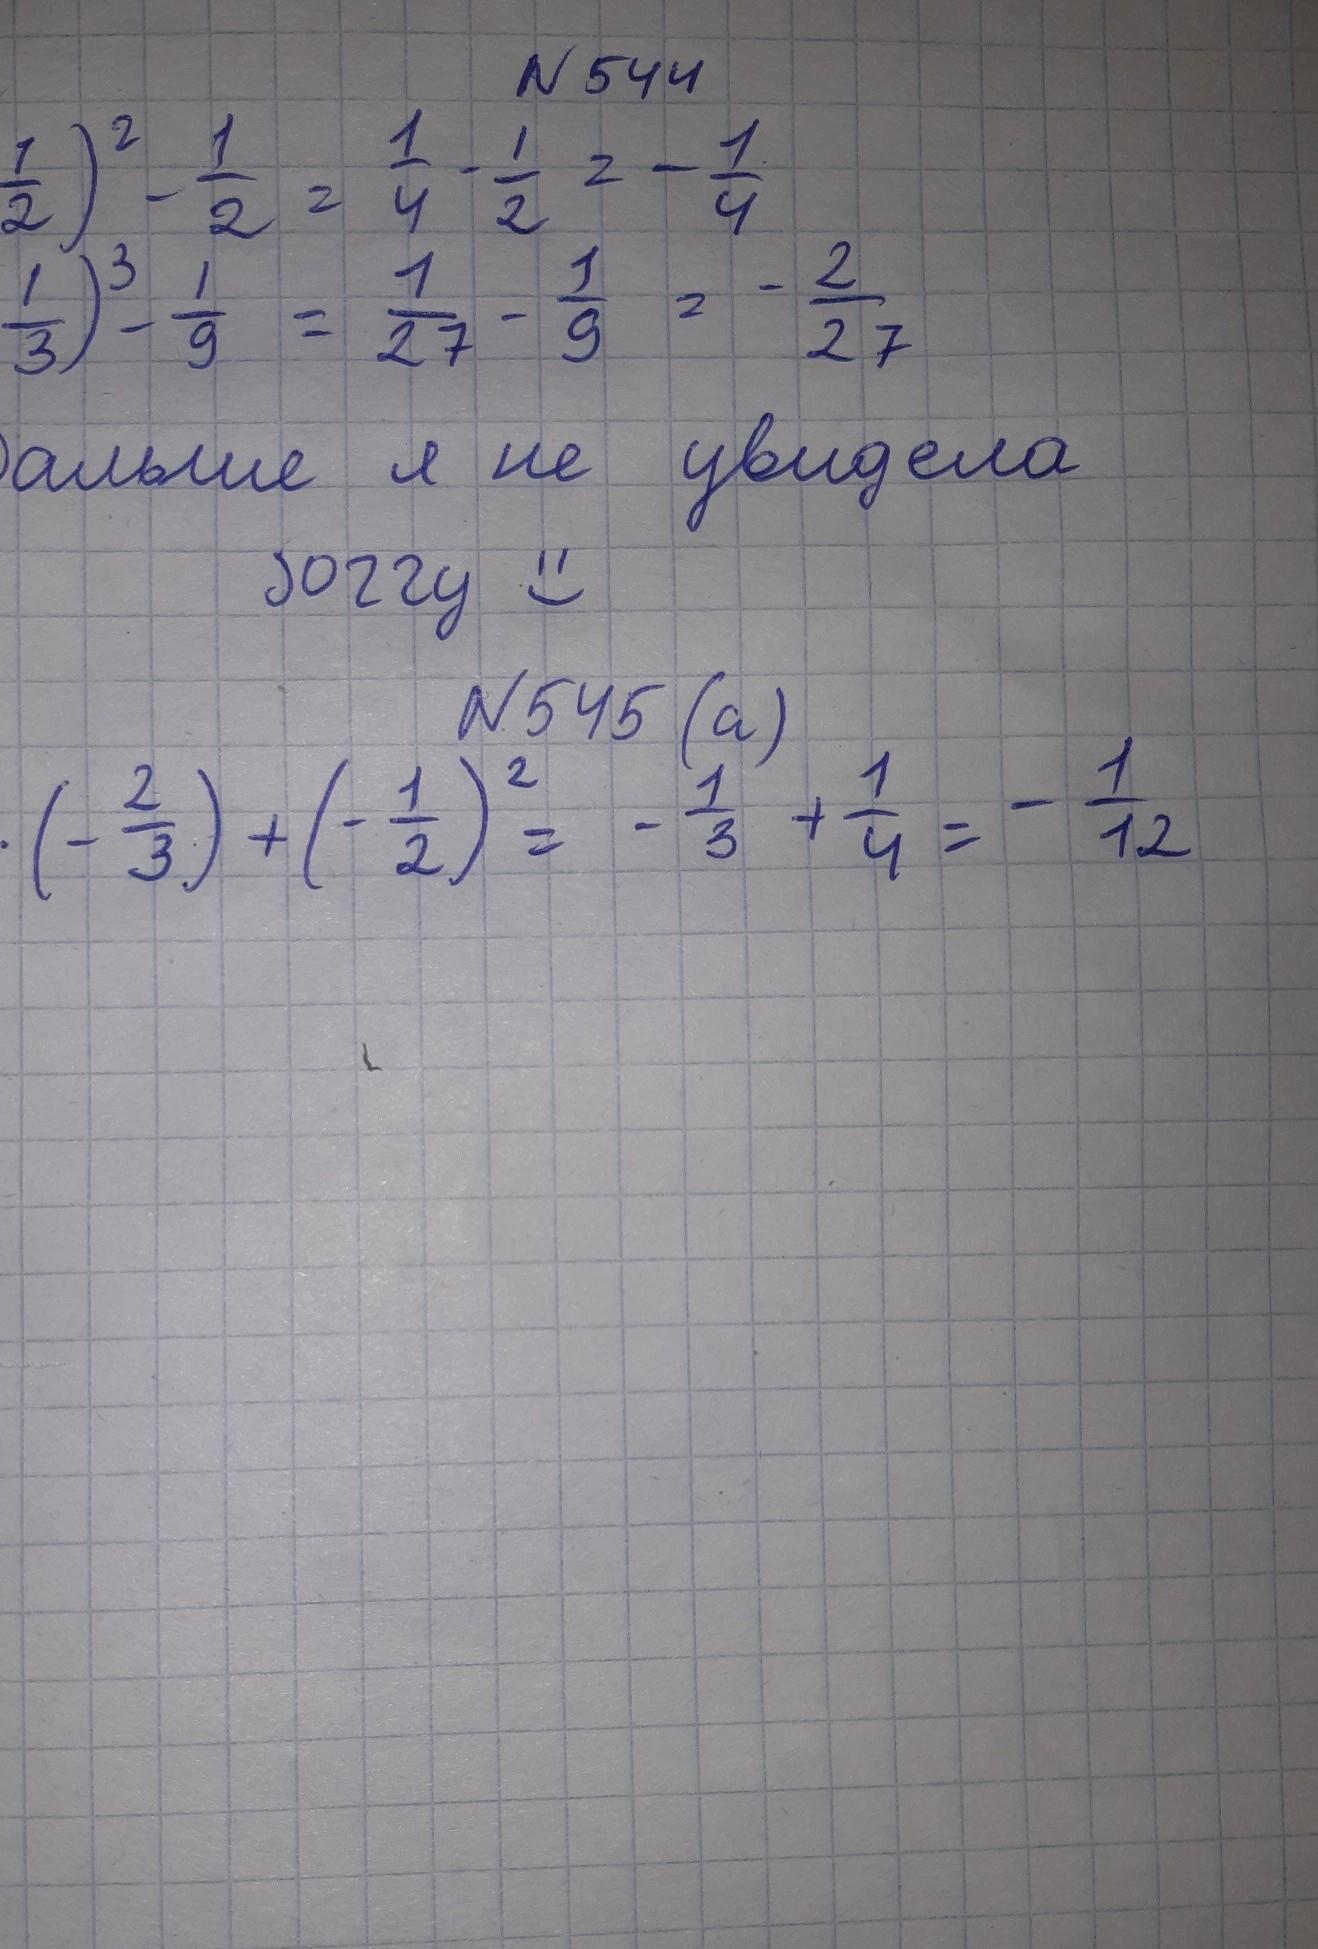 N 544
1/2)² - 1/2 = 1/4 - 1/2 = - 1/4
1/3)³ - 1/9 = 1/27 - 1/9 = - 2/27
Дальше я не увидела
sorry :)
N 545 (а)
· (- 2/3) + (- 1/2)² = - 1/3 + 1/4 = - 1/12